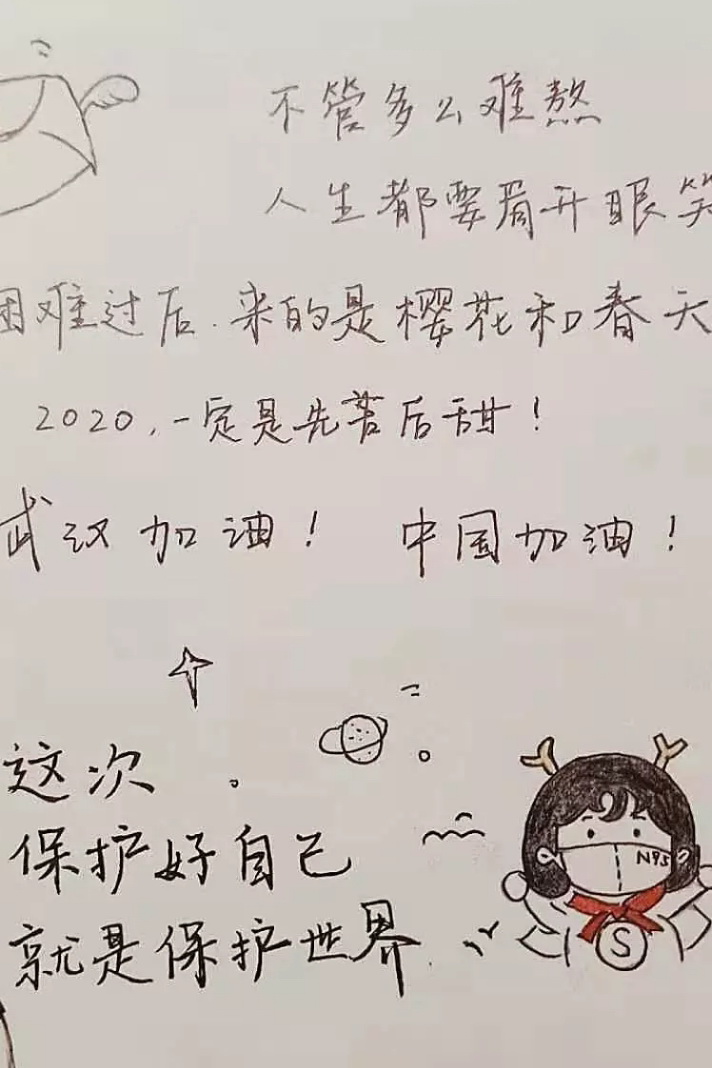 不管多么难熬
人生都要眉开眼笑
困难过后.来的是樱花和春天
2020,一定是先苦后甜!
武汉加油! 中国加油!
这次
保护好自己
就是保护世界.
N95
S